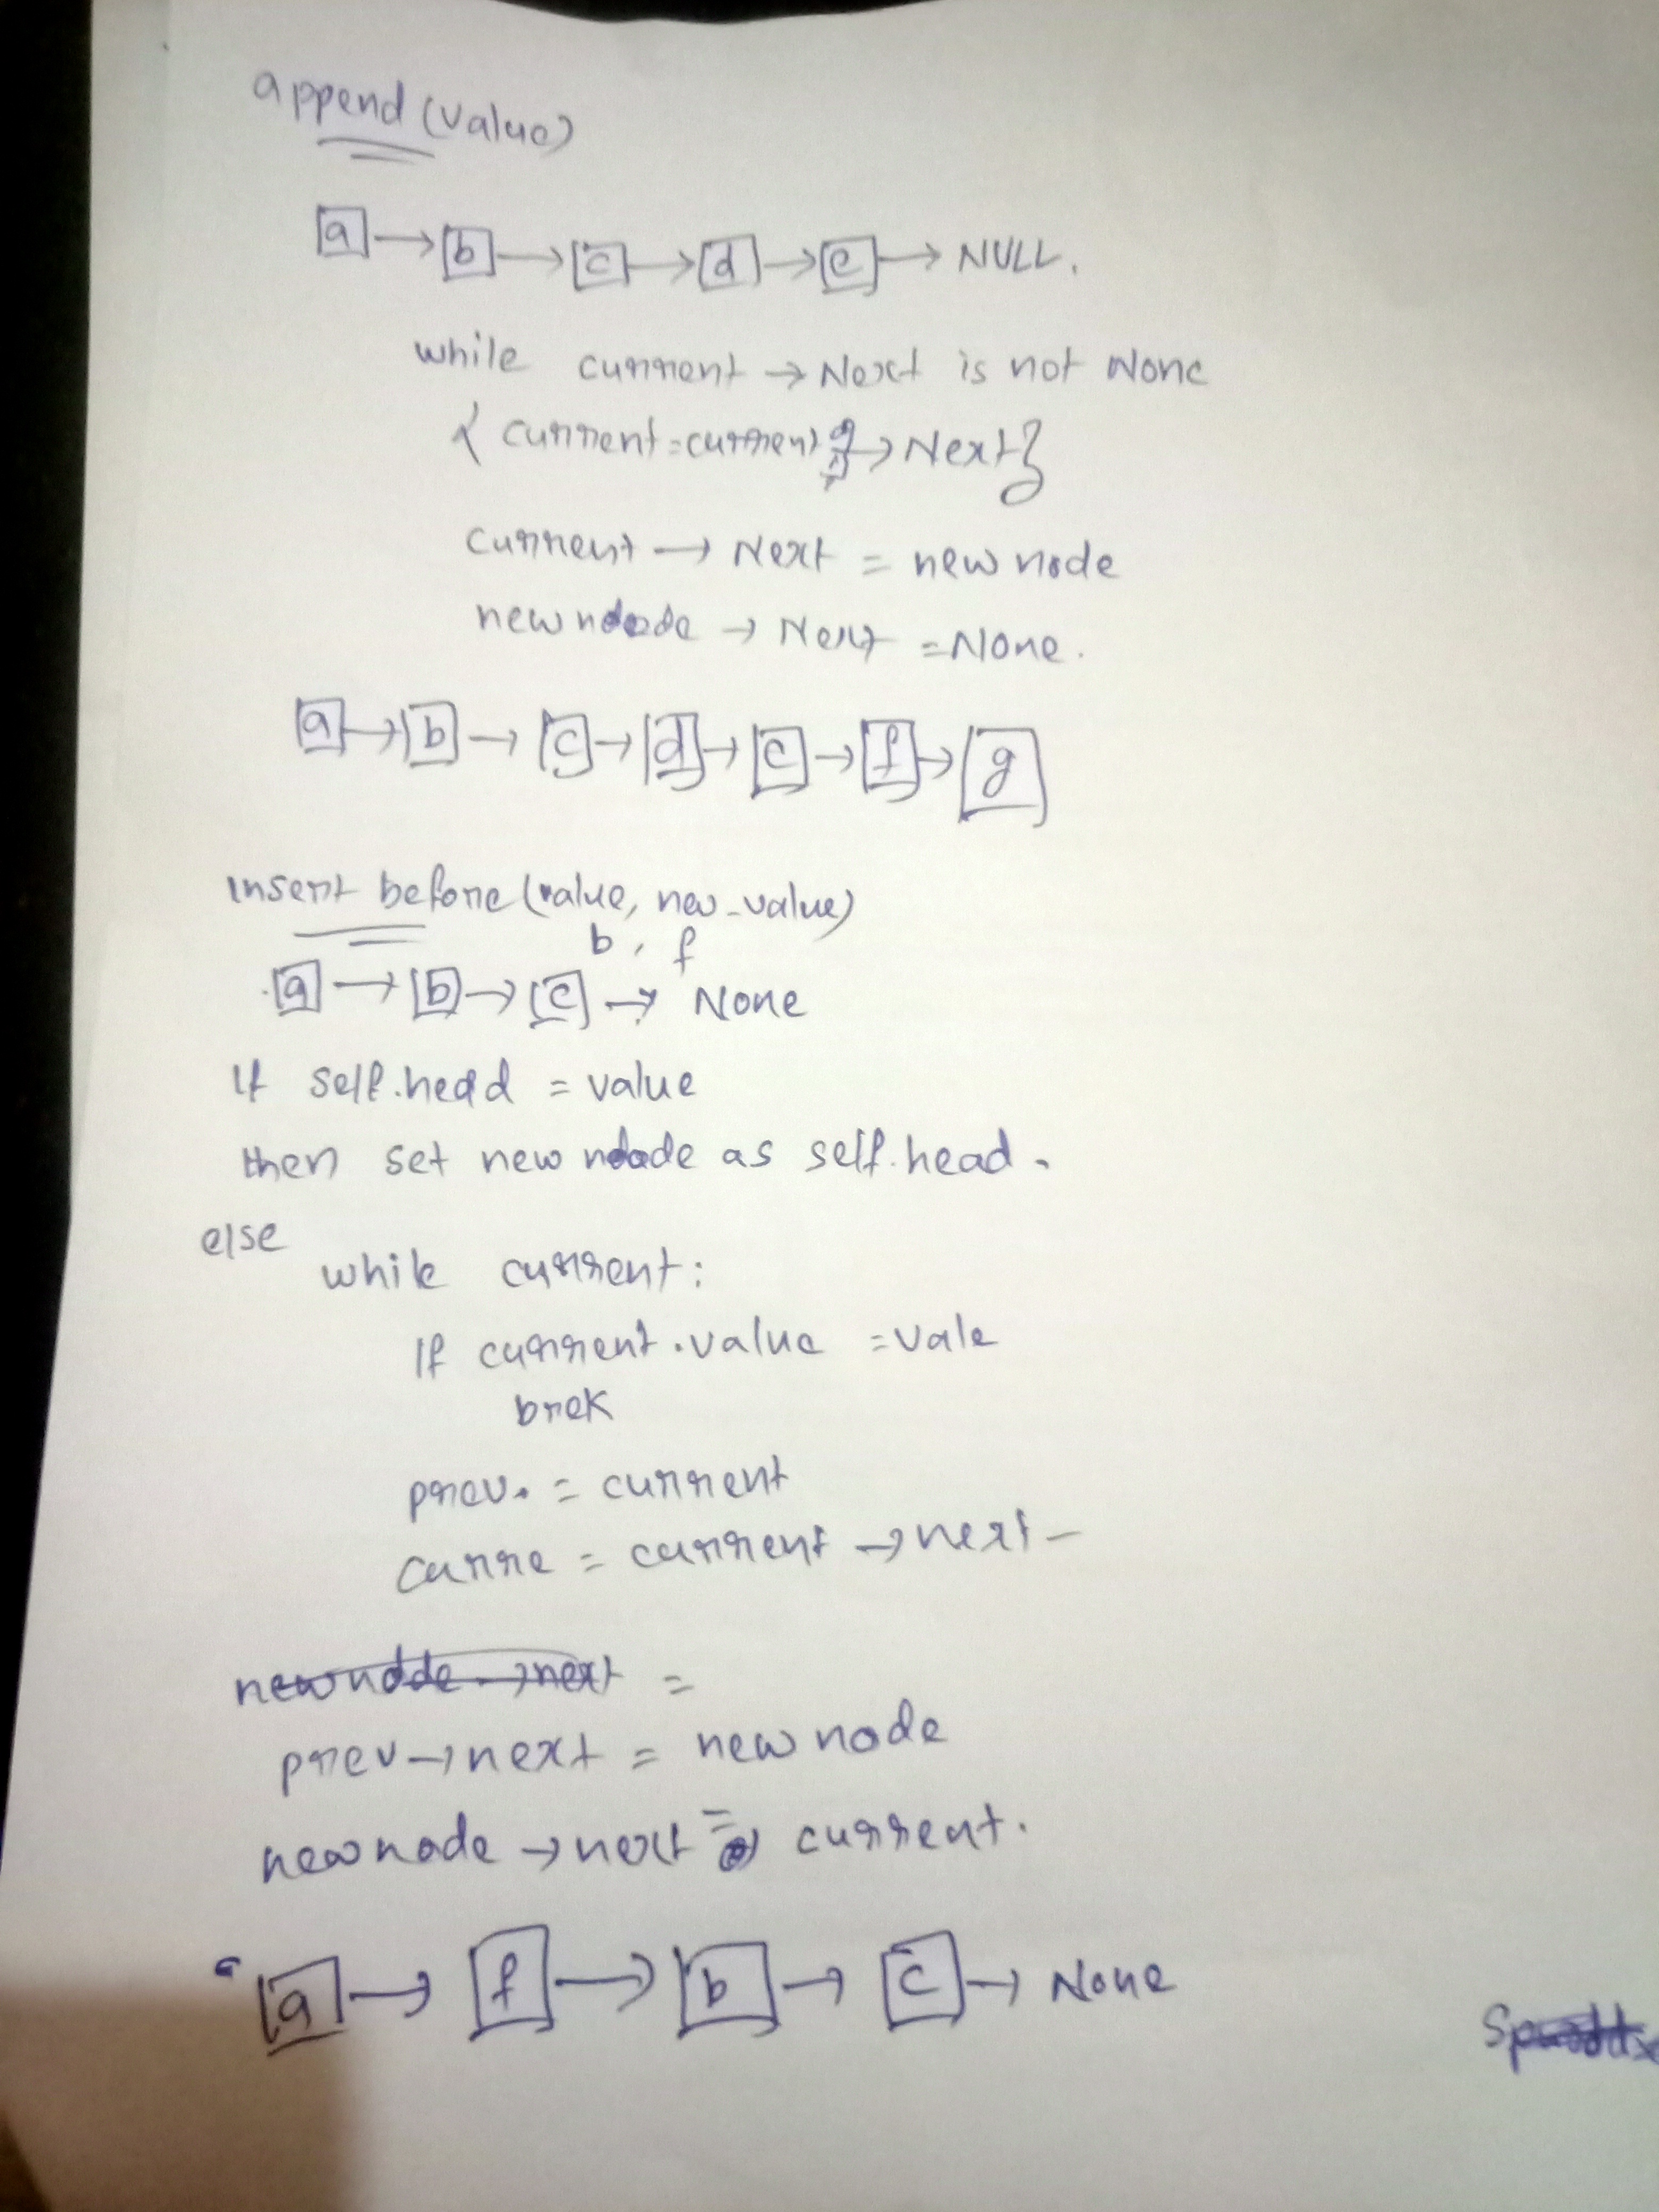 append (value)
a → b → c → d → e → NULL.
while current → Next is not None
{ current = current → Next }
current → Next = new node
new node → Next = None.
a → b → c → d → e → f → g
insert before (value, new_value)
b, f
a → b → c → None
If self.head = value
then set new node as self.head.
else
while current:
If current.value = vale
brek
prev. = current
curre = current → next -
newnode → next =
prev → next = new node
new node → next = current.
a → f → b → c → None